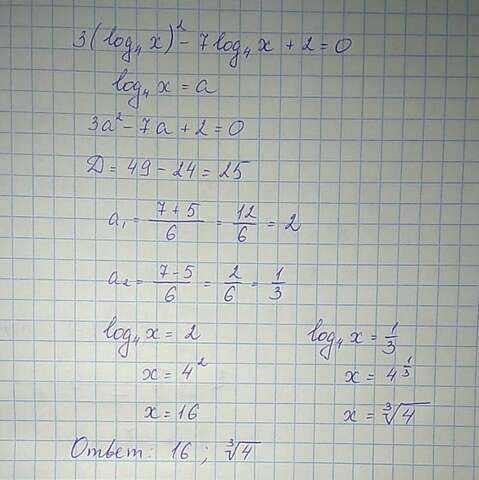 3(log₄x)² - 7log₄x + 2 = 0
log₄x = a
3a² - 7a + 2 = 0
D = 49 - 24 = 25
a₁ = (7 + 5)/6 = 12/6 = 2
a₂ = (7 - 5)/6 = 2/6 = 1/3
log₄x = 2 log₄x = 1/3
x = 4² x = 4^(1/3)
x = 16 x = ∛4
Ответ: 16 ; ∛4